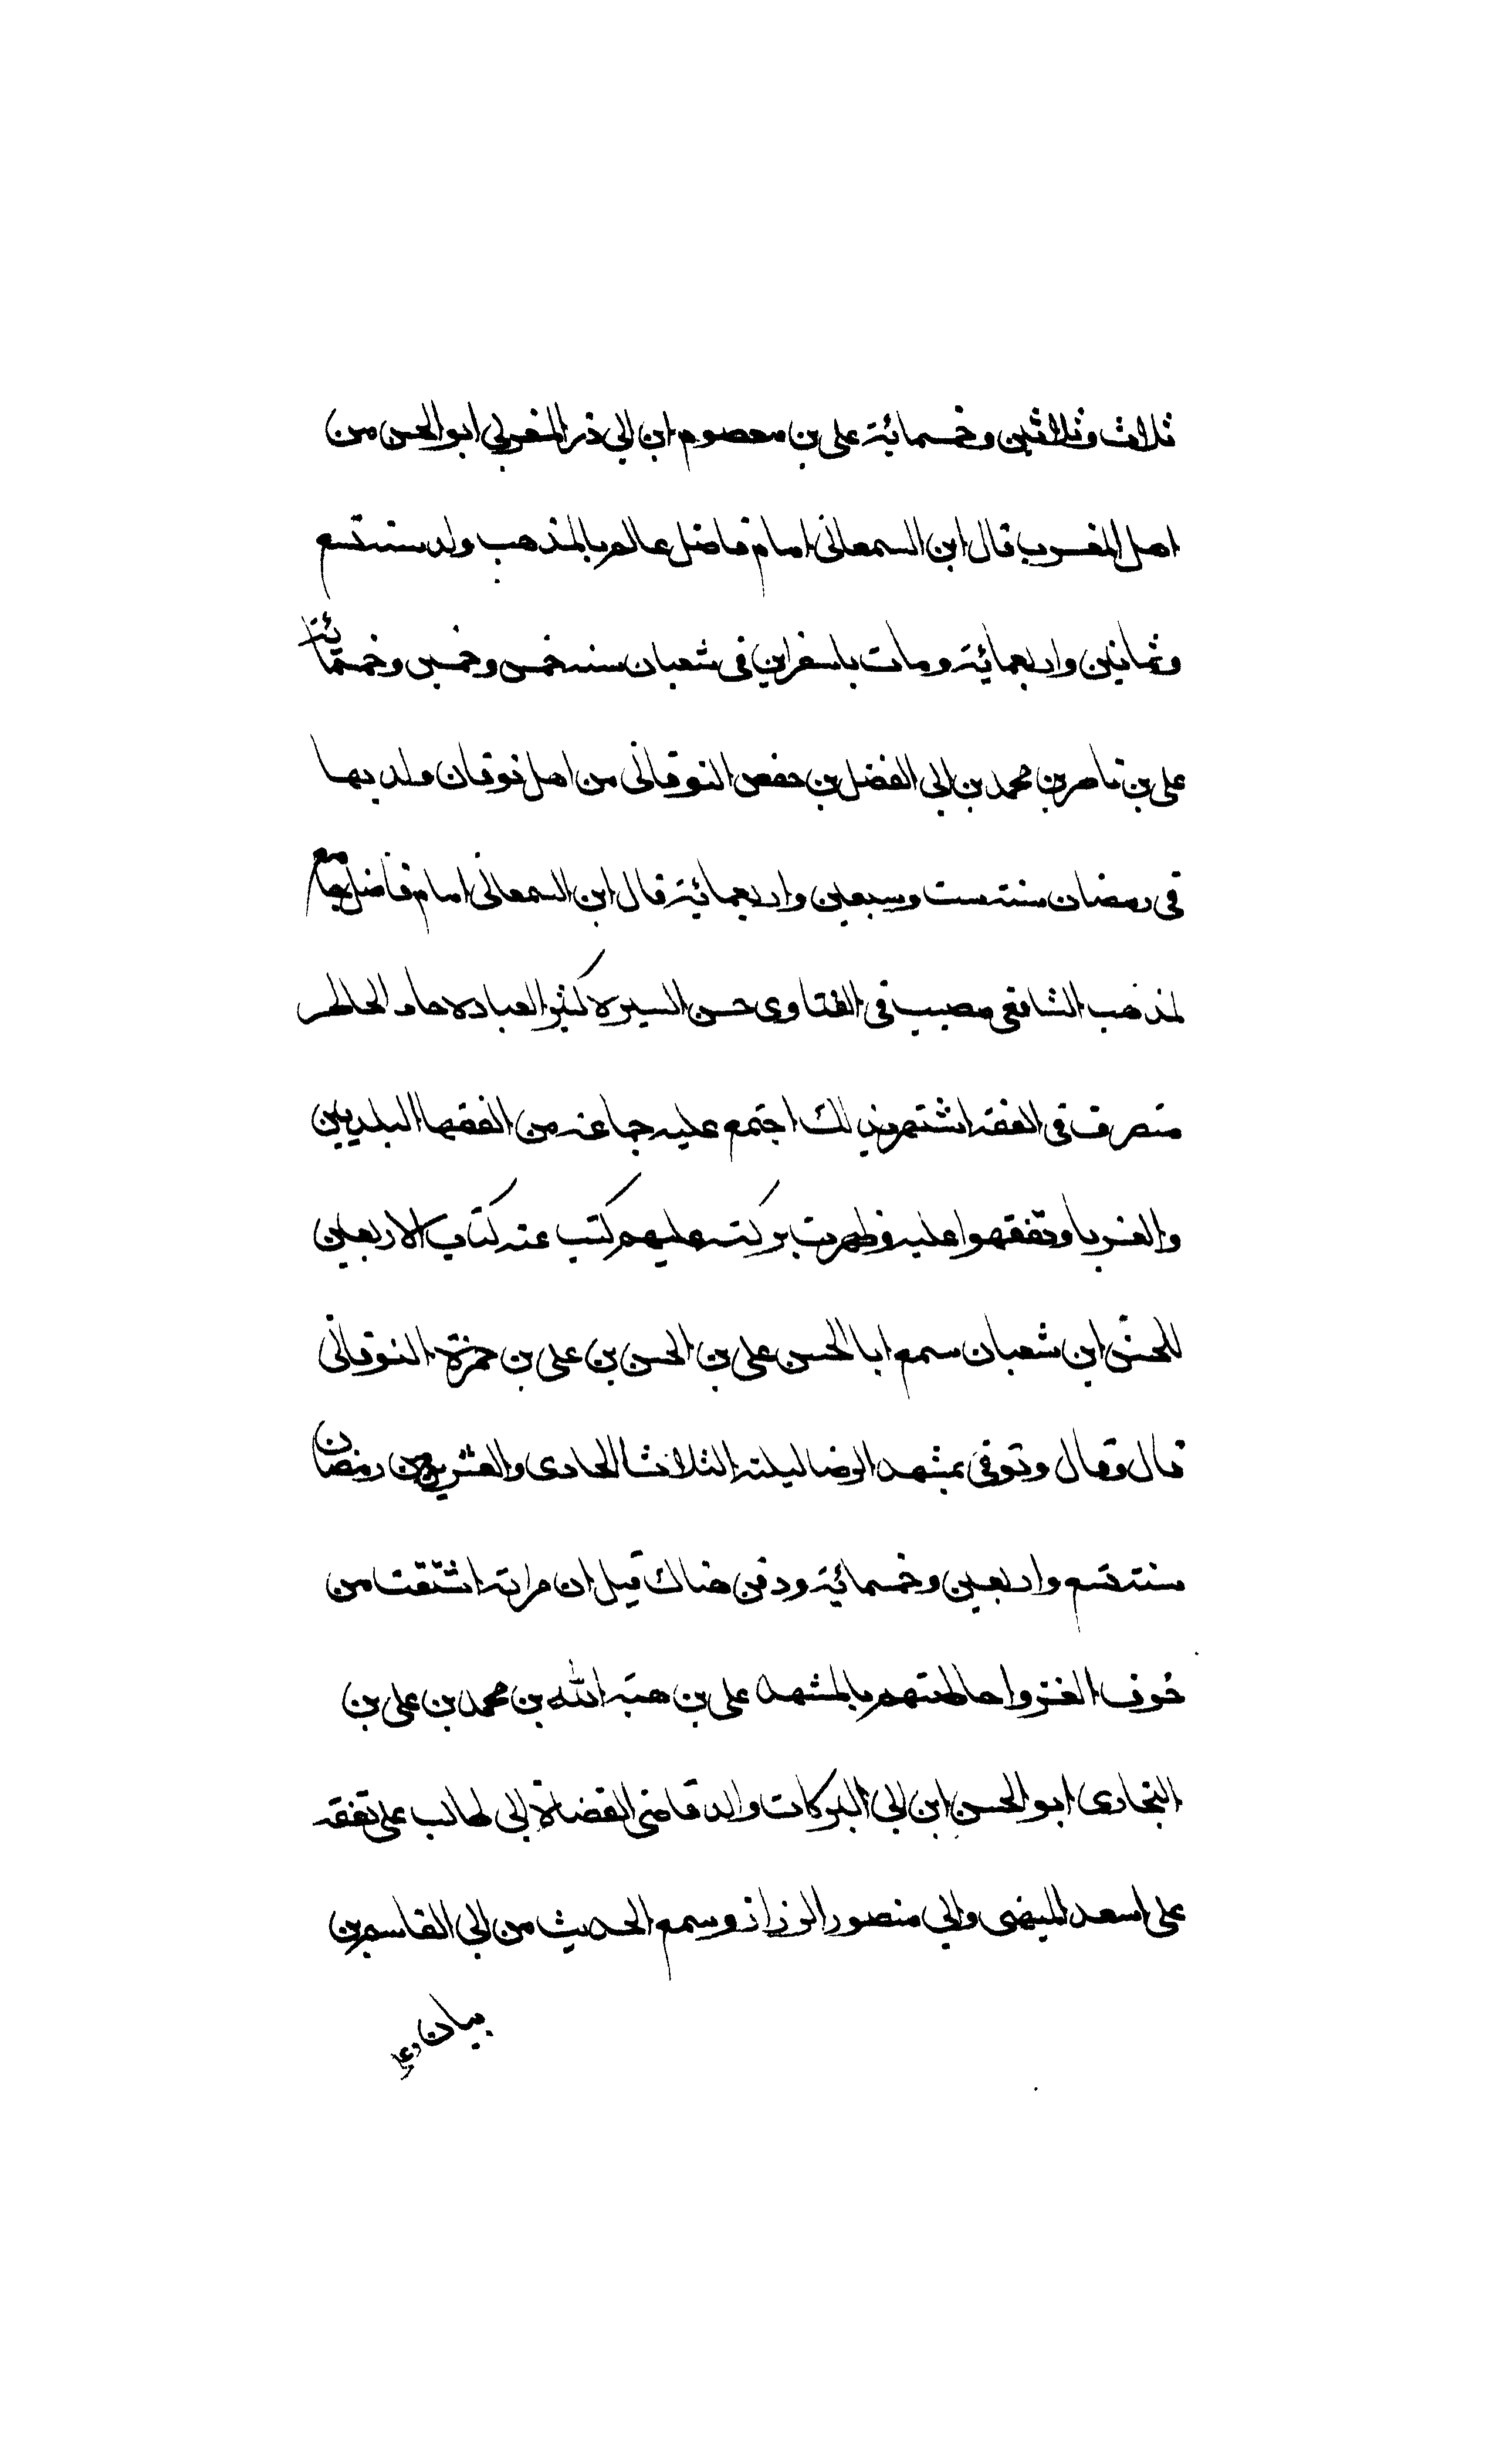 ثلاث وثلاثين وخمسمائة على بن معصوم ابن ابى ذر المغربى ابو الحسن من
اهل المغرب قال ابن السمعانى امام فاضل عالم بالمذهب ولد سنة تسع
وثمانين واربعمائة ومات باسفراين فى شعبان سنه خمس وخمسين وخمسمائة
على بن ناصر بن محمد بن ابى الفضل بن حفص النوقانى من اهل نوقان ولد بها
فى رمضان سنة ست وسبعين واربعمائة قال ابن السمعانى امام فاضل
لمذهب الشافعى مصيب فى الفتاوى حسن السيرة كثير العباده حاد الخاطر
متصرف فى الفقه اشتهر بذلك اجتمع عليه جماعة من الفقها البلديين
والغربا وتفقهوا عليه وظهرت بركته عليهم كتب عنه كتاب الاربعين
للحسن ابن شعبان سمع ابا الحسن على بن الحسن بن على بن حمزة النوقانى
قال وقال وتوفى بمشهد الرضا ليلة الثلاثا الحادى والعشرين من رمضان
سنة تسع واربعين وخمسمائة ودفن هناك قيل ان مرارته انشقت من
خوف الغز واحاطتهم بالمشهد على بن هبة الله بن محمد بن على بن
البخارى ابو الحسن ابن ابى البركات والد قاضى القضاة ابى طالب على تفقه
على اسعد الميهنى وابى منصور الرزاز وسمع الحديث من ابى القاسم بن
بيان